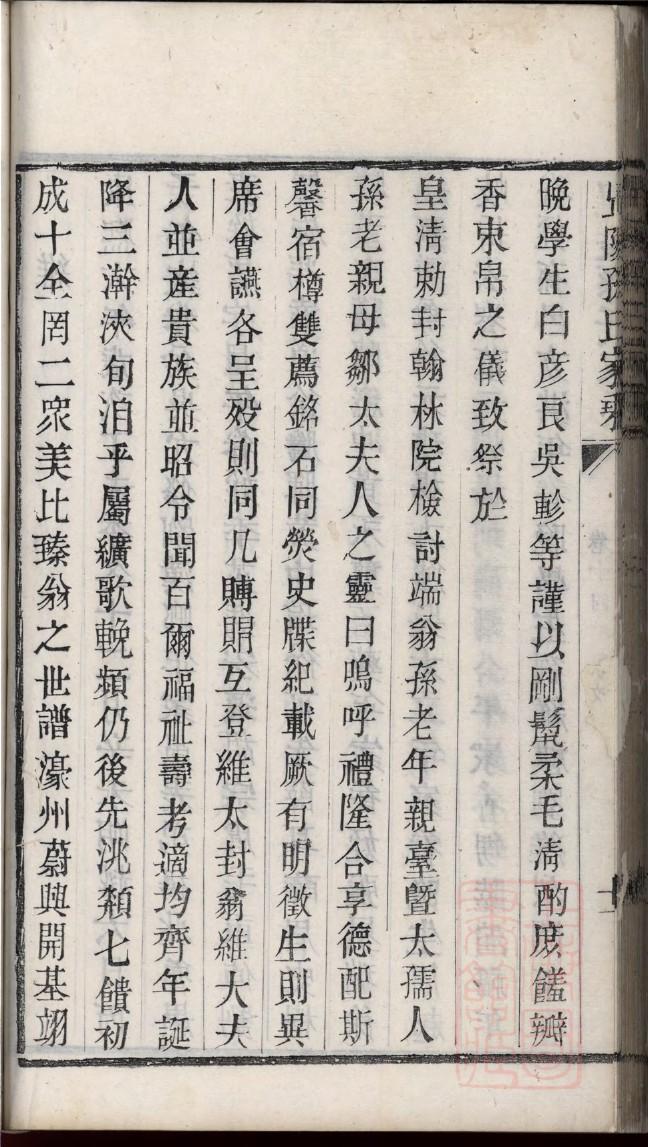 陽孫氏家乘
晚學生白彥良吳軫等謹以剛鬣柔毛清酌庶饈瓣
香束帛之儀致祭於
皇清勅封翰林院檢討端翁孫老年親臺曁太孺人
孫老親母鄒太夫人之靈曰嗚呼禮隆合享德配斯
馨宿樽雙薦銘石同熒史牒紀載厥有明徵生則異
席會讌各呈歿則同几賻賵互登維太封翁維大夫
人並產貴族並昭令聞百爾福祉壽考適均齊年誕
降三澣浹旬洎乎屬纊歌輓頻仍後先洮頮七饋初
成十全罔二衆美比臻翁之世譜濠州蔚興開基翊